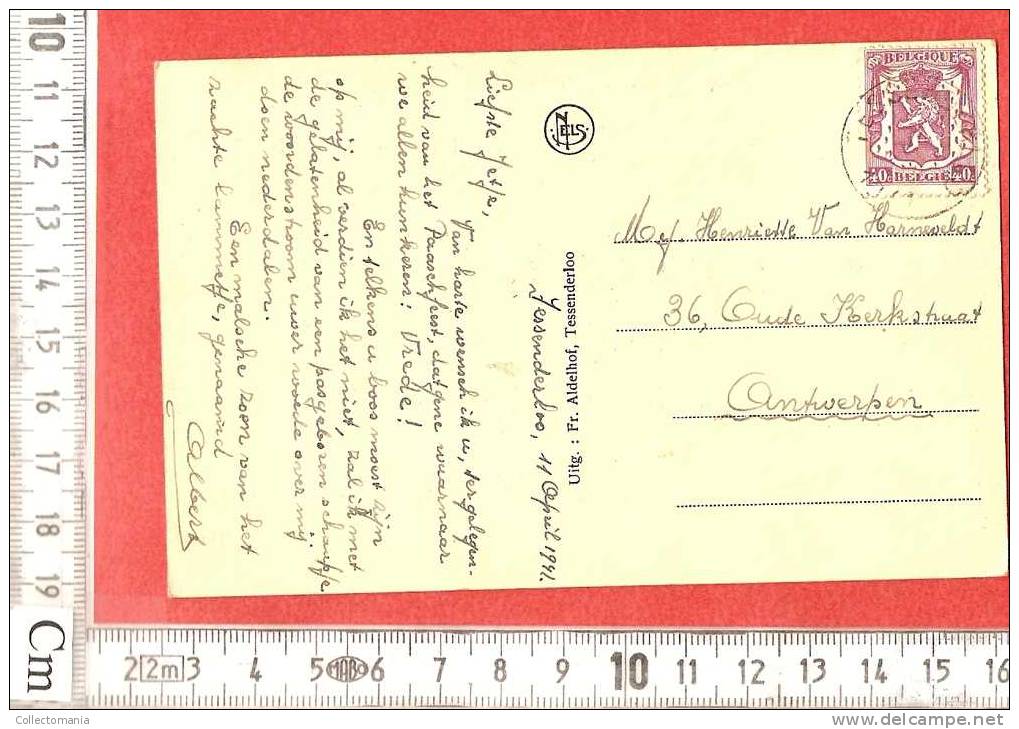 Tessenderloo, 11 April 1941.
Liefste Jetje,
Van harte wensch ik u, ter gelegen-
heid van het Paaschfeest, datgene waarnaar
we allen hunkeren: Vrede!
En telkens u boos moest zijn
op mij, al verdien ik het niet, zal ik met
de gelatenheid van een pasgeboren schaapje
de woordenstroom uwer woede over mij
doen nederdalen.
Een malsche zoon van het
zachte lammetje, genaamd
Albert
Uitg. : Fr. Aldelhof, Tessenderloo
NELS
BELGIQUE
40 BELGIE 40
Mej. Henriette Van Harneveldt
36, Oude Kerkstraat
Antwerpen
10 11 12 13 14 15 16 17 18 19
Cm
2 2m 3 4 5 MABO 6 7 8 9 10 11 12 13 14 15 16
Collectomania
delcampe.net